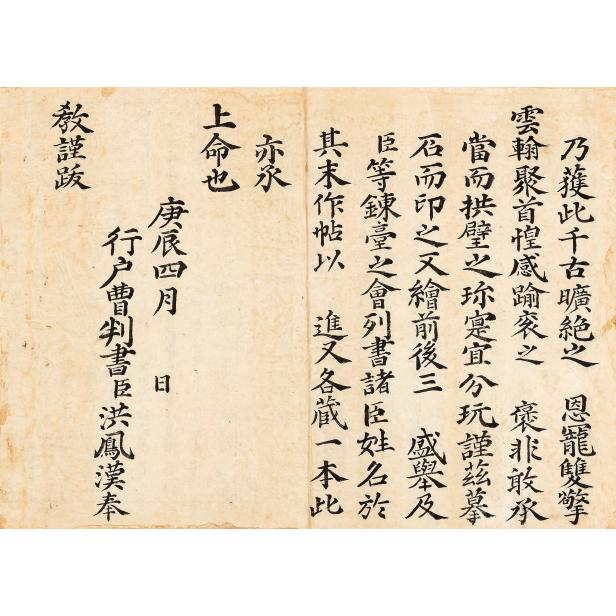 乃獲此千古曠絶之　恩寵雙擎
雲翰聚首惶感踰衮之　褒非敢承
當而拱璧之珎寔宜分玩謹玆摹
石而印之又繪前後三　盛舉及
臣等鍊臺之會列書諸臣姓名於
其末作帖以　進又各藏一本此
亦承
上命也
庚辰四月　日
行户曹判書臣洪鳳漢奉
教謹跋